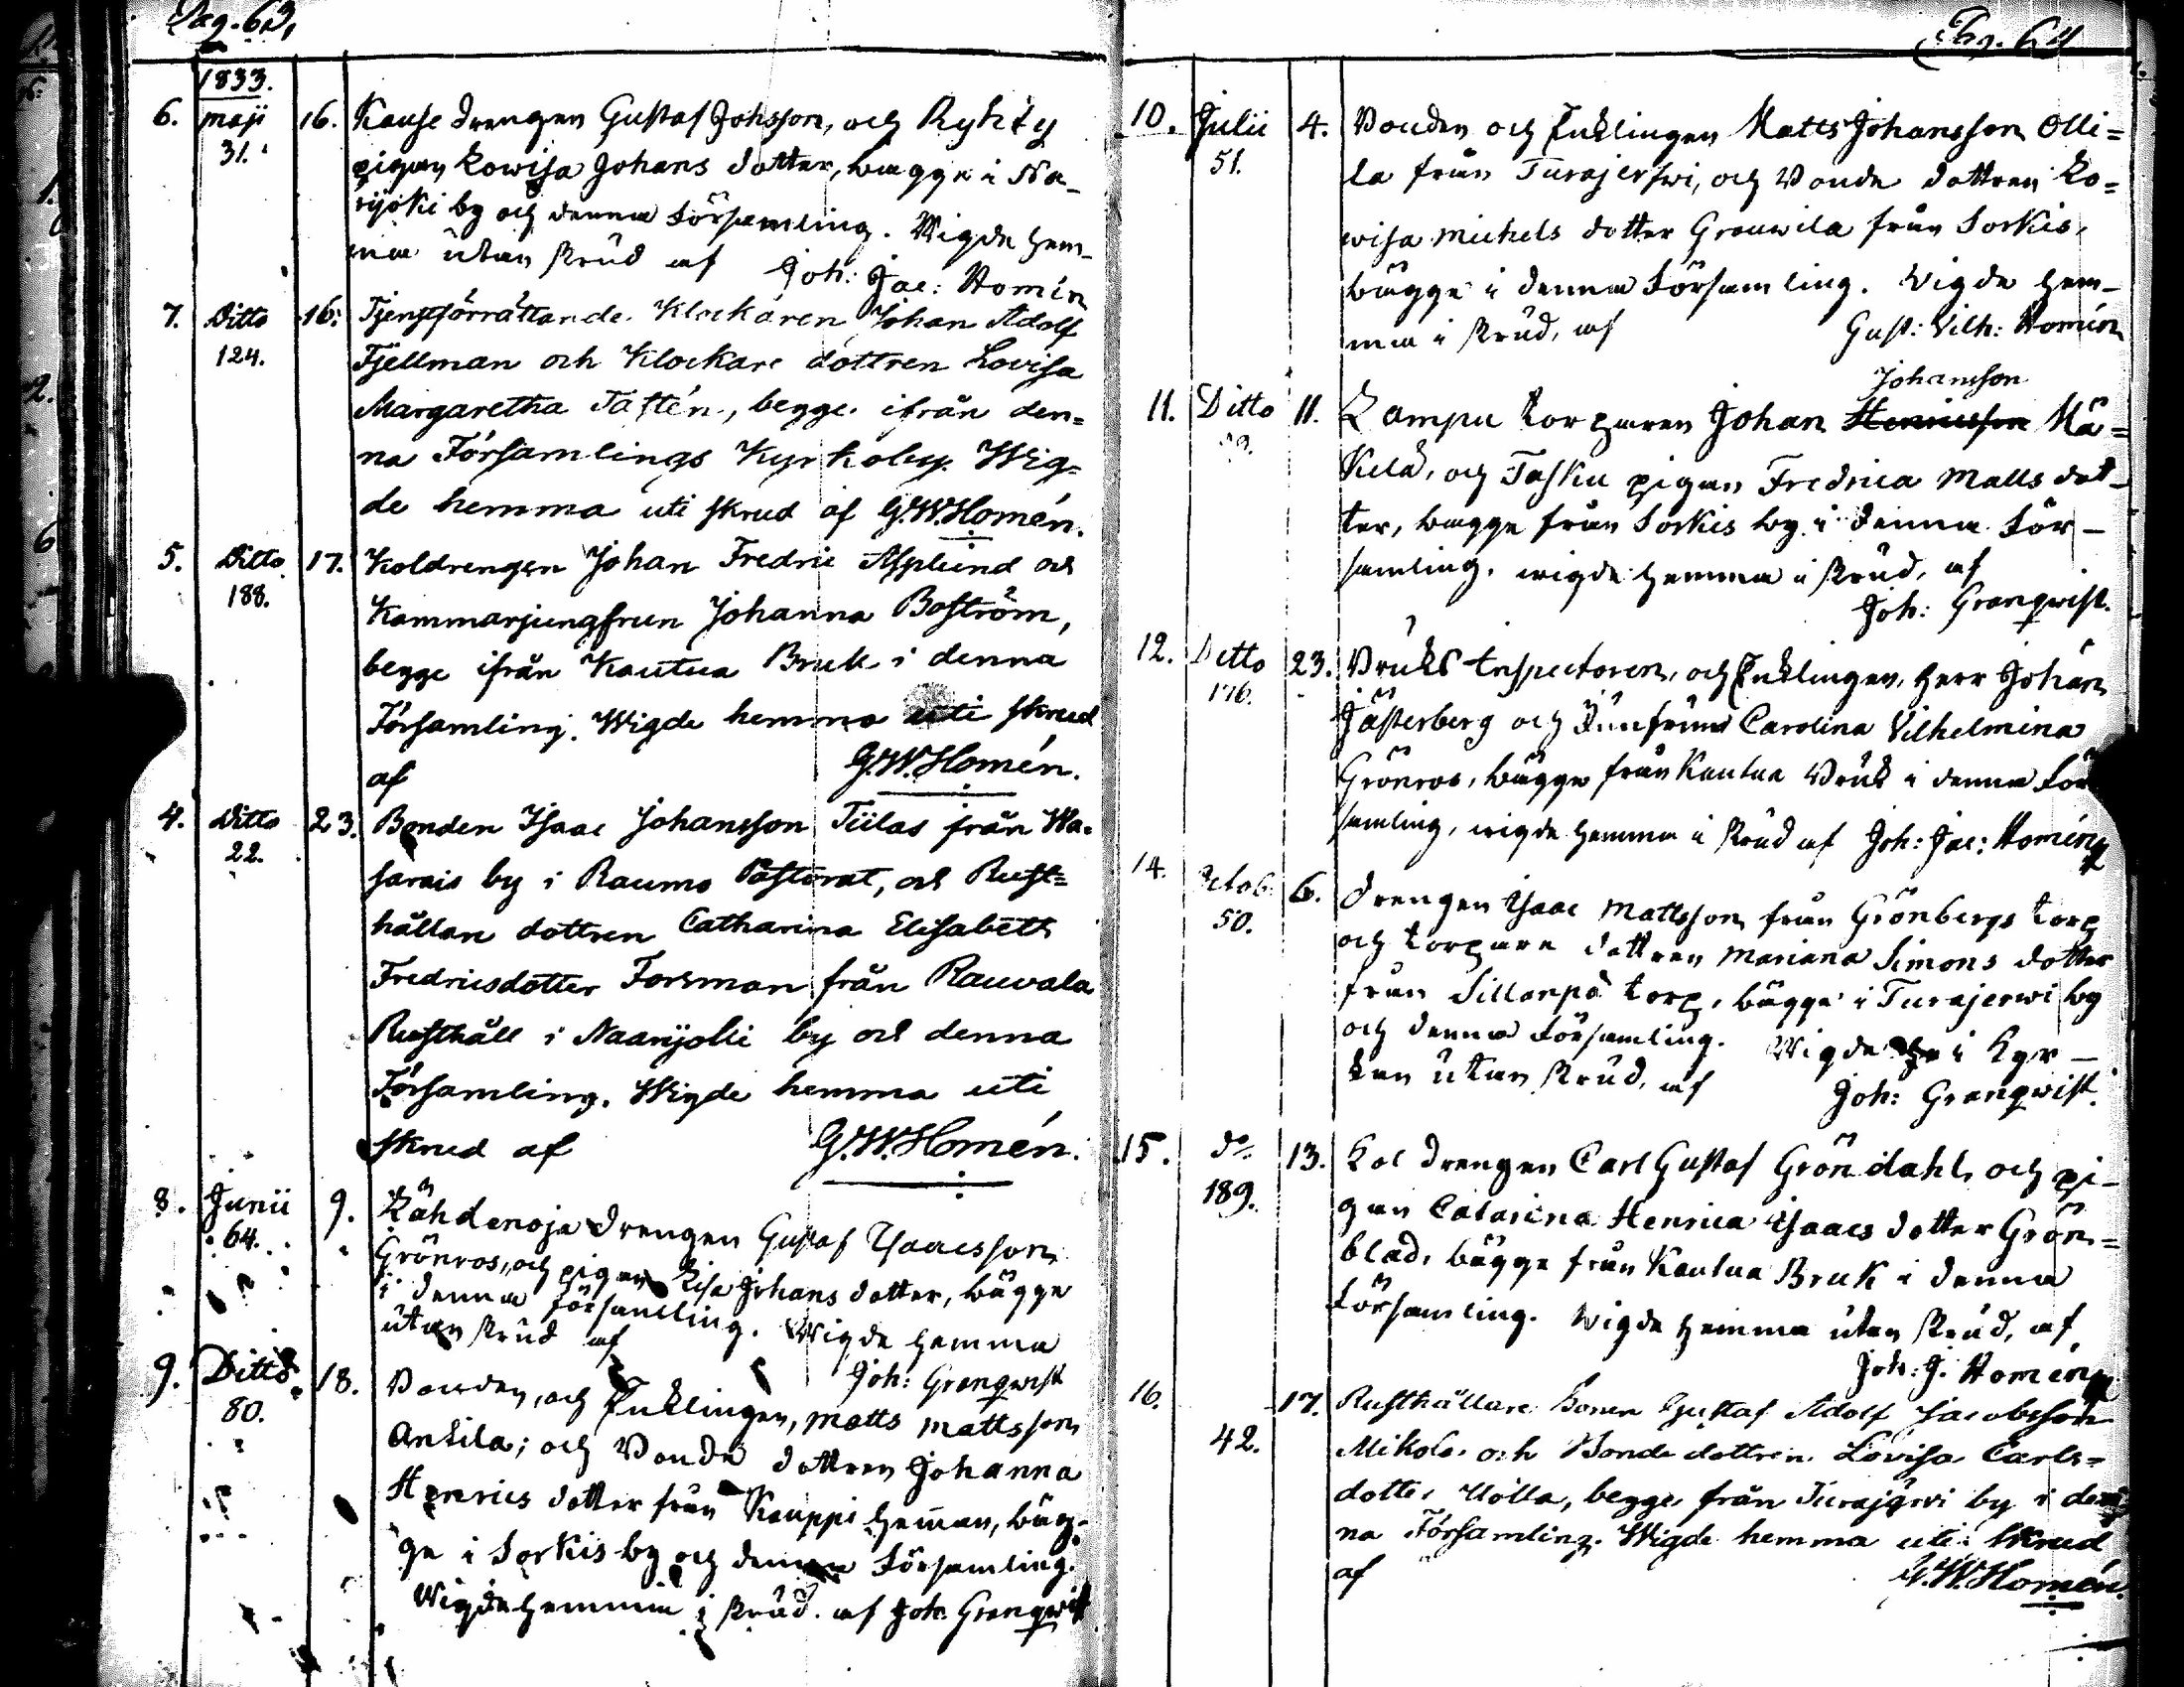 Pag. 63,
1833.
6. maji 16. Kause drengen Gustaf Johsson, och Ryhty
31. pigan Lowisa Johans dotter, bägge i Na-
rijoki by och denna Församling. Wigde hem-
ma utan skrud af Joh: Jac: Homén
7. Ditto 16. Tjenstförrättande Klockaren Johan Adolf
124. Fjellman och Klockare dottren Lovisa
Margaretha Tasten, begge ifrån den=
na Församlings Kyrkoby. Wig=
de hemma uti skrud af G.W.Homén.
5. Ditto 17. Koldrengen Johan Fredric Asplund och
188. Kammarjungfrun Johanna Boström,
begge ifrån Kautua Bruk i denna
Församling. Wigde hemma uti skrud
af G.W.Homén.
4. Ditto 23. Bonden Isaac Johansson Tiilas från Wa=
22. sarais by i Raumo Pastorat, och Rust=
hållan dottren Catharina Elisabeth
Fredricsdotter Forsman från Rauvala
Rusthåll i Naarijolli by och denna
Församling. Wigde hemma uti
skrud af G.W.Homén.
8. Junii 9. Lähdenoja drengen Gustaf Isaacsson
64. Grönros, och pigan Lisa Johans dotter, bägge
i denna församling. Wigde hemma
utan skrud af
Joh: Granqwist
9. Ditto 18. Bonden, och Enklingen, Matts Mattsson
80. Antila; och Bonde dottren Johanna
Henrics dotter från Kauppi hemman, bäg-
ge i Sorkis by och denna Församling.
Wigde hemma i skrud. af Joh. Granqwist
Pag. 64
10. Julii 4. Bonden och Enklingen Matts Johansson Olli=
51. la från Turajerfwi, och Bonde dottren Lo=
wisa Michels dotter Grouwila från Sorkis,
bägge i denna Församling. Wigde hem-
ma i skrud, af Gust: Vilh: Homén
Johansson
11. Ditto 11. Lampu torparen Johan Henricsson Mä=
kelä, och Tasku pigan Fredrica Matts dot-
ter, bägge från Sorkis by i denna För-
samling. wigde hemma i skrud, af
Joh: Granqwist.
12. Ditto 23. Bruks Inspectoren, och Enklingen, Herr Johan
176. Jästerberg och Jumfrun Carolina Vilhelmina
Grönros, bägge från Kautua Bruk i denna För
samling, wigde hemma i skrud af Joh: Jac: Homén
14. Octob. 6. Drengen Isaac Mattsson från Grönbergs torp
50. och torpare dottren Mariana Simons dotter
från Sillanpä torp, bägge i Turajerwi by
och denna Församling. Wigde i Kyr-
kan utan skrud, af Joh: Granqwist.
15. do. 13. Kol drengen Carl Gustaf Gröndahl, och pi-
189. gan Catarina Henrica Isaacs dotter Grön=
blad, bägge från Kautua Bruk i denna
Församling. Wigde hemma utan skrud, af
Joh: J. Homén
16. 17. Rusthållare Sonen Gustaf Adolf Jacobsson
42. Mikola och Bonde dottren Lovisa Carls=
dotter Uölla, begge från Turajärvi by i den
na Församling. Wigde hemma uti skrud
af G.W.Homén.